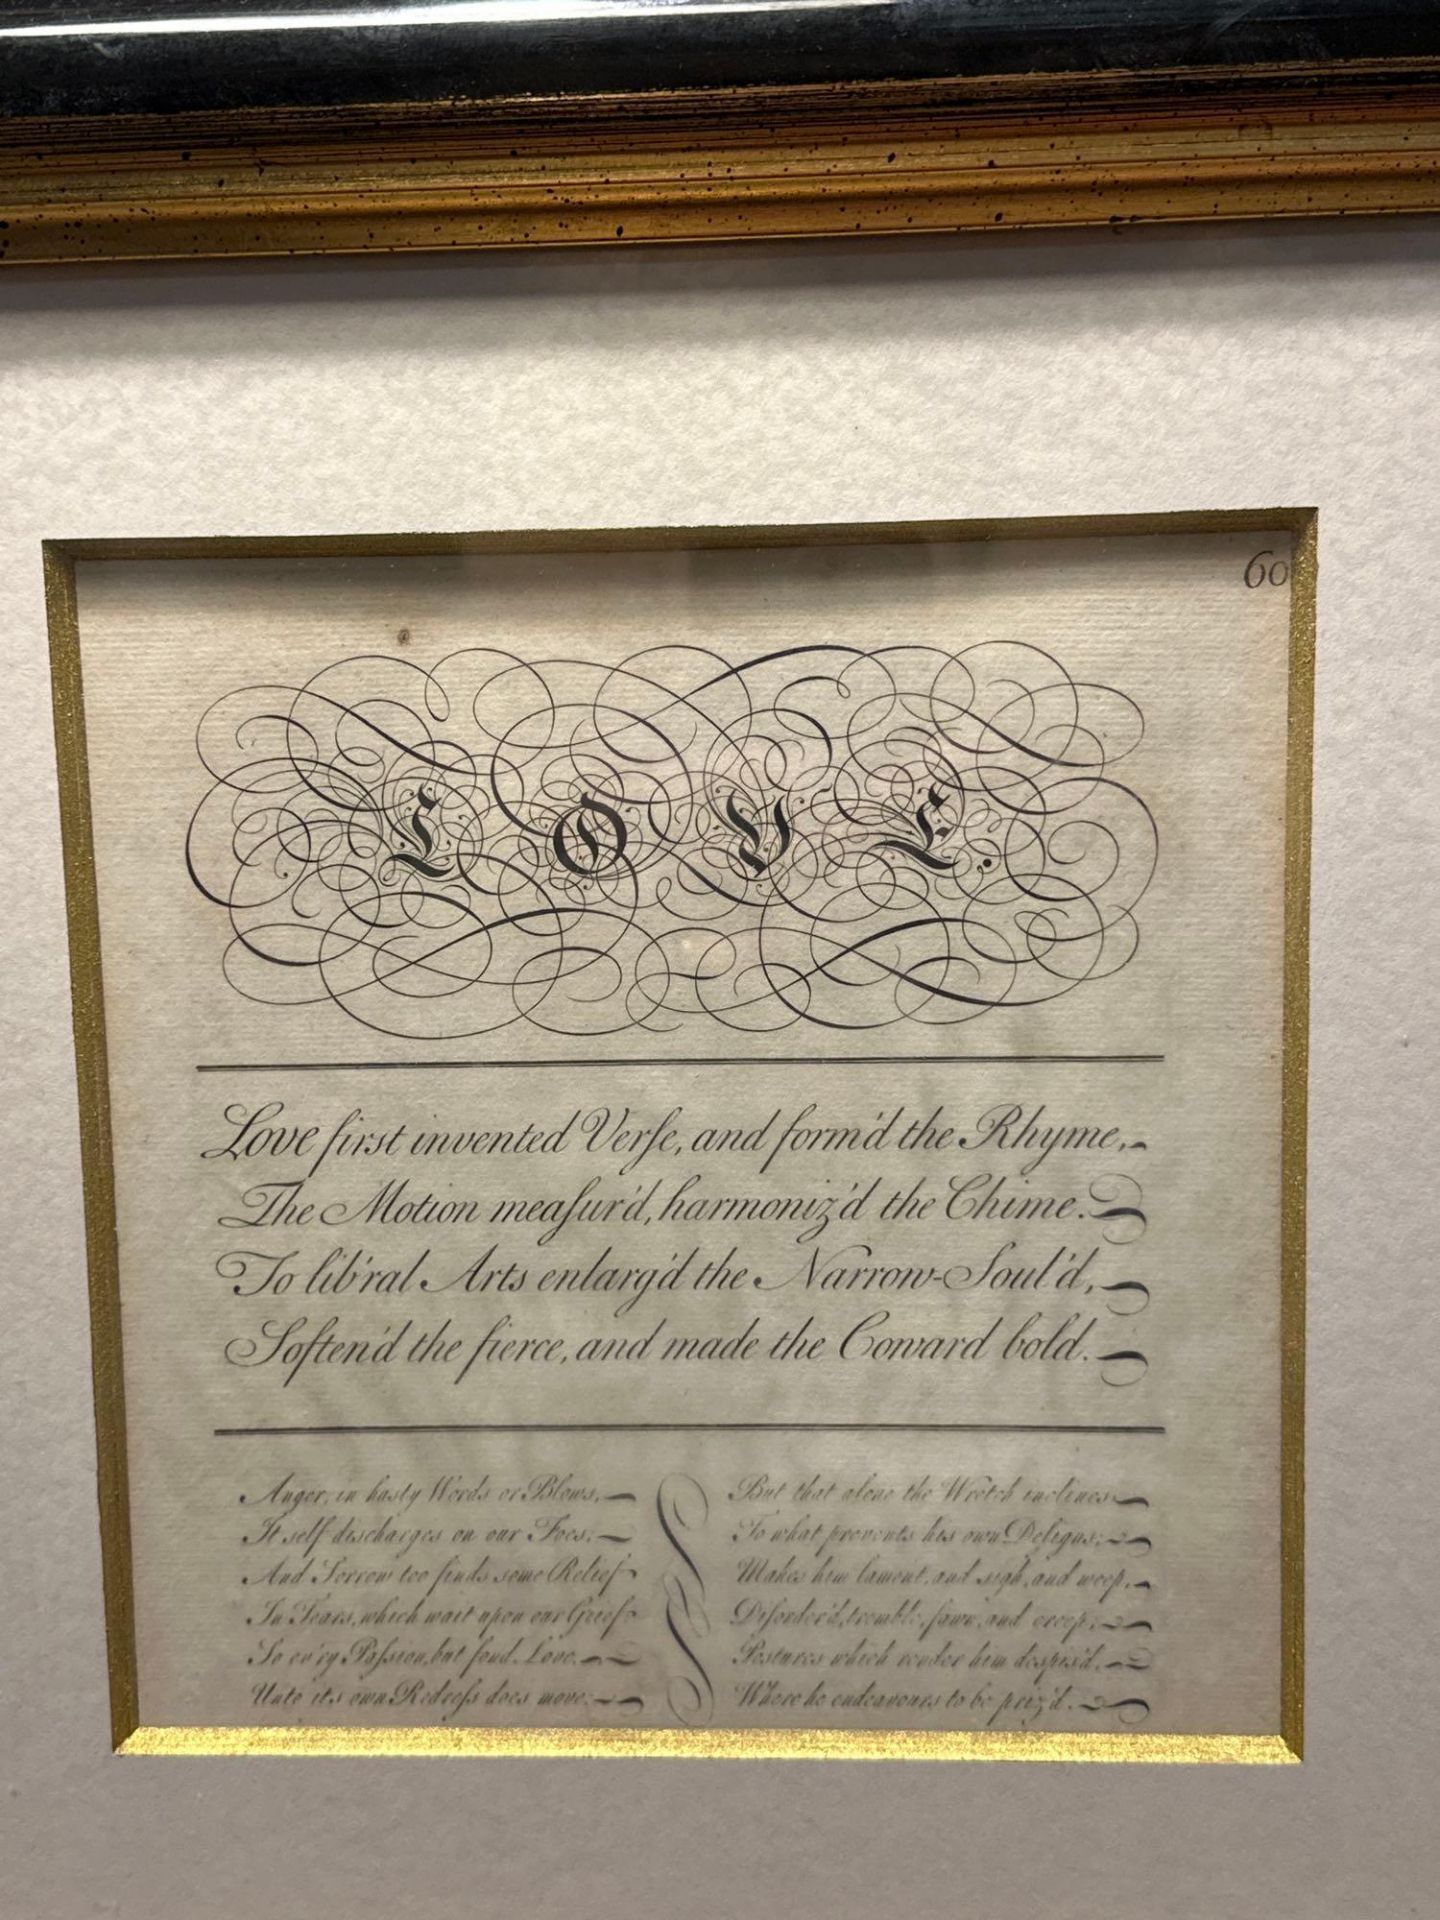 60
LOVE.
Love first invented Verſe, and form'd the Rhyme,
The Motion meaſur'd, harmoniz'd the Chime.
To lib'ral Arts enlarg'd the Narrow-Soul'd,
Soften'd the fierce, and made the Coward bold.
Anger, in hasty Words or Blows,
It self discharges on our Foes;
And Sorrow too finds some Relief
In Tears, which wait upon our Grief:
So ev'ry Paſsion, but fond Love,
Unto its own Redreſs does move;
But that alone the Wretch inclines
To what prevents his own Deſigns;
Makes him lament, and sigh, and weep,
Diſorder'd, tremble, fawn, and creep;
Postures which render him despis'd,
Where he endeavours to be priz'd.